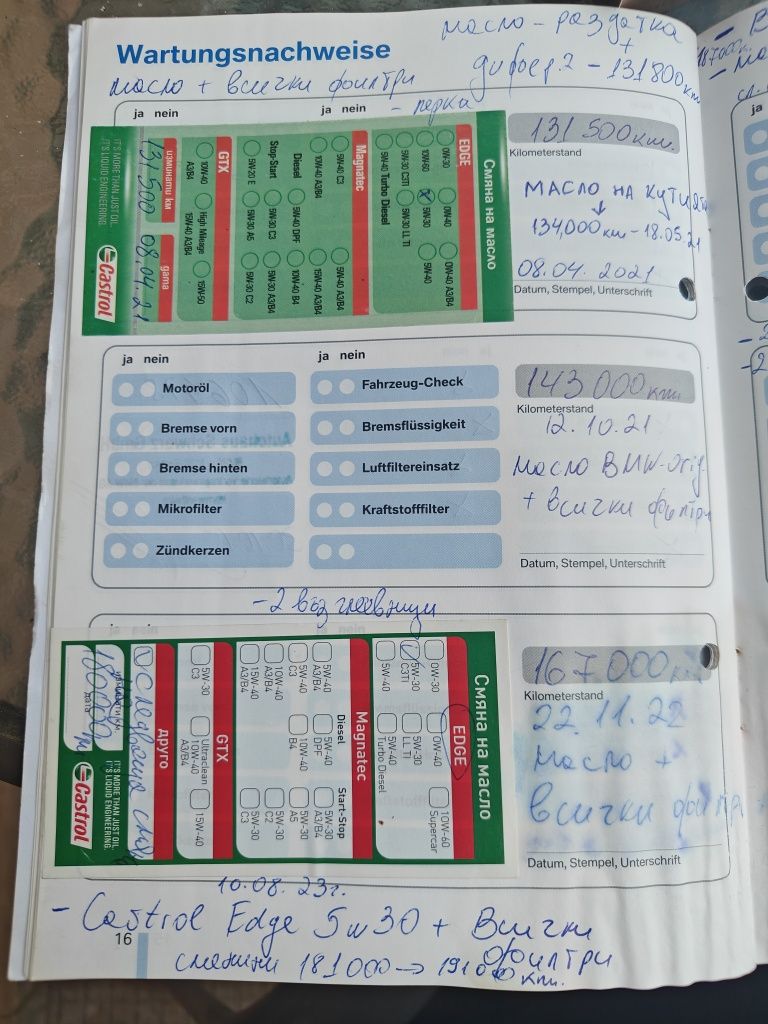 масло - раздатка
+
Wartungsnachweise
дифер. 2 - 131800км
масло + всички филтри
- перки
187000к.
ja nein
ja nein
Смяна на масло
EDGE
0W-30
0W-40
0W-40 A3/B4
10W-60
5W-30
5W-40
5W-30 C3TI
5W-30 LL TI
5W-40 Turbo Diesel
Magnatec
5W-40 C3
5W-40 A3/B4
10W-40 A3/B4
15W-40 A3/B4
Diesel
5W-40 DPF
10W-40 B4
Stop-Start
5W-30 C3
5W-30 A3/B4
5W-20 E
5W-30 A5
5W-30 C2
GTX
10W-40 A3/B4
High Mileage 15W-40 A3/B4
15W-50
изминати км
дата
131 500
08.04.21
IT'S MORE THAN JUST OIL.
IT'S LIQUID ENGINEERING.
Castrol
131 500км.
Kilometerstand
МАСЛО НА КУТИЯТА
134,000км - 18.05.21
08.04.2021
Datum, Stempel, Unterschrift
ja
ja nein
ja nein
Motoröl
Fahrzeug-Check
Bremse vorn
Bremsflüssigkeit
Bremse hinten
Luftfiltereinsatz
Mikrofilter
Kraftstofffilter
Zündkerzen
143 000км.
Kilometerstand
12.10.21
Масло BMW-orig.
+ всички филтри
Datum, Stempel, Unterschrift
Смяна на масло
EDGE
0W-30
0W-40
10W-60 Supercar
5W-30 C3TI
5W-30 LL TI
5W-40
5W-40 Turbo Diesel
Magnatec
Diesel
Start-Stop
5W-40 A3/B4
5W-40 DPF
5W-30 A3/B4
5W-40 C3
10W-40 B4
5W-30 A5
10W-40 A3/B4
5W-30 C2
15W-40 A3/B4
5W-30 C3
GTX
5W-30 C3
Ultraclean 10W-40 A3/B4
15W-40
друго
дата
180000
IT'S MORE THAN JUST OIL.
IT'S LIQUID ENGINEERING.
Castrol
167 000
Kilometerstand
22.11.22
Масло +
всички филтри
Datum, Stempel, Unterschrift
10.08.23г.
- Castrol Edge 5w30 + Всички
филтри
16
сменени 181000 → 191000 км.